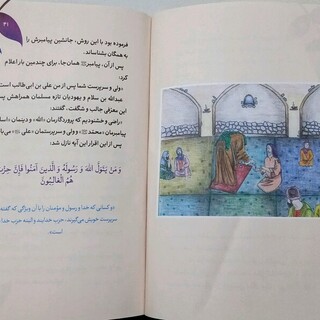 ۳۱
فرموده بود با این روش، جانشین پیامبرش را
به همگان بشناساند.
پس از آن، پیامبرﷺ همان‌جا، برای چندمین بار اعلام
کرد:
«ولی و سرپرست شما پس از من علی بن ابی‌طالب است
عبدالله بن سلام و یهودیان تازه مسلمان همراهش پس
این معرّفی جالب و شگفت، گفتند:
«راضی و خشنودیم که پروردگارمان «الله» و دینمان «اسلا
پیامبرمان «محمّد ﷺ» و سرپرستمان «علی
پس از این اقرار این آیه نازل شد:
وَ مَنْ يَتَوَلَّ اللهَ وَ رَسُولَهُ وَ الَّذِينَ آمَنُوا فَإِنَّ حِزْبَ
هُمُ الْغَالِبُونَ
و کسانی که خدا و رسول و مؤمنان را با آن ویژگی که گفته
سرپرست خویش می‌گیرند، حزب خدایند و البته حزب خدا
است.